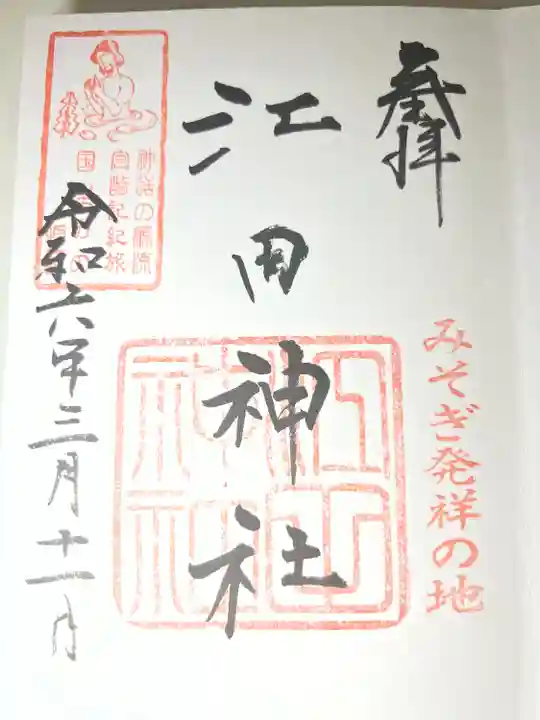 奉拝
みそぎ発祥の地
江田神社
江田神社
神話の源流
宮崎記紀旅
令和六年三月十一日